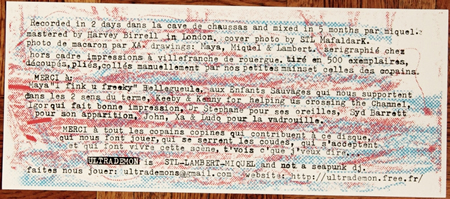 Recorded in 2 days dans la cave de chaussas and mixed in 5 months par miquel.
mastered by Harvey Birrell in London, cover photo by Stf Mafaldark.
photo de macaron par XA. drawings: Maya, Miquel & Lambert. sérigraphié chez
hors cadre impressions à villefranche de rouergue, tiré en 500 exemplaires,
découpés, pliés, collés manuellement par nos petites mains et celles des copains.
MERCI À:
Maya "I fink u freeky" Hellegueule, aux Enfants Sauvages qui nous supportent
dans les 2 sens du terme, Keeby & Kenny for helping us crossing the Channel,
Igor qui fait bonne impression, Dr Stéphane pour ses oreilles, Syd Barrett
pour son apparition, John, Xa & Ludo pour la vadrouille.
MERCI à tout les copains copines qui contribuent à ce disque,
qui nous font jouer, qui se serrent les coudes, qui s'acceptent
et qui font vivre cette scène, t'vois c'que j'veux dire...
ULTRADEMON is STF-LAMBERT-MIQUEL and not a seapunk dj.
faites nous jouer: ultrademons@gmail.com website: http://ultrademon.free.fr/